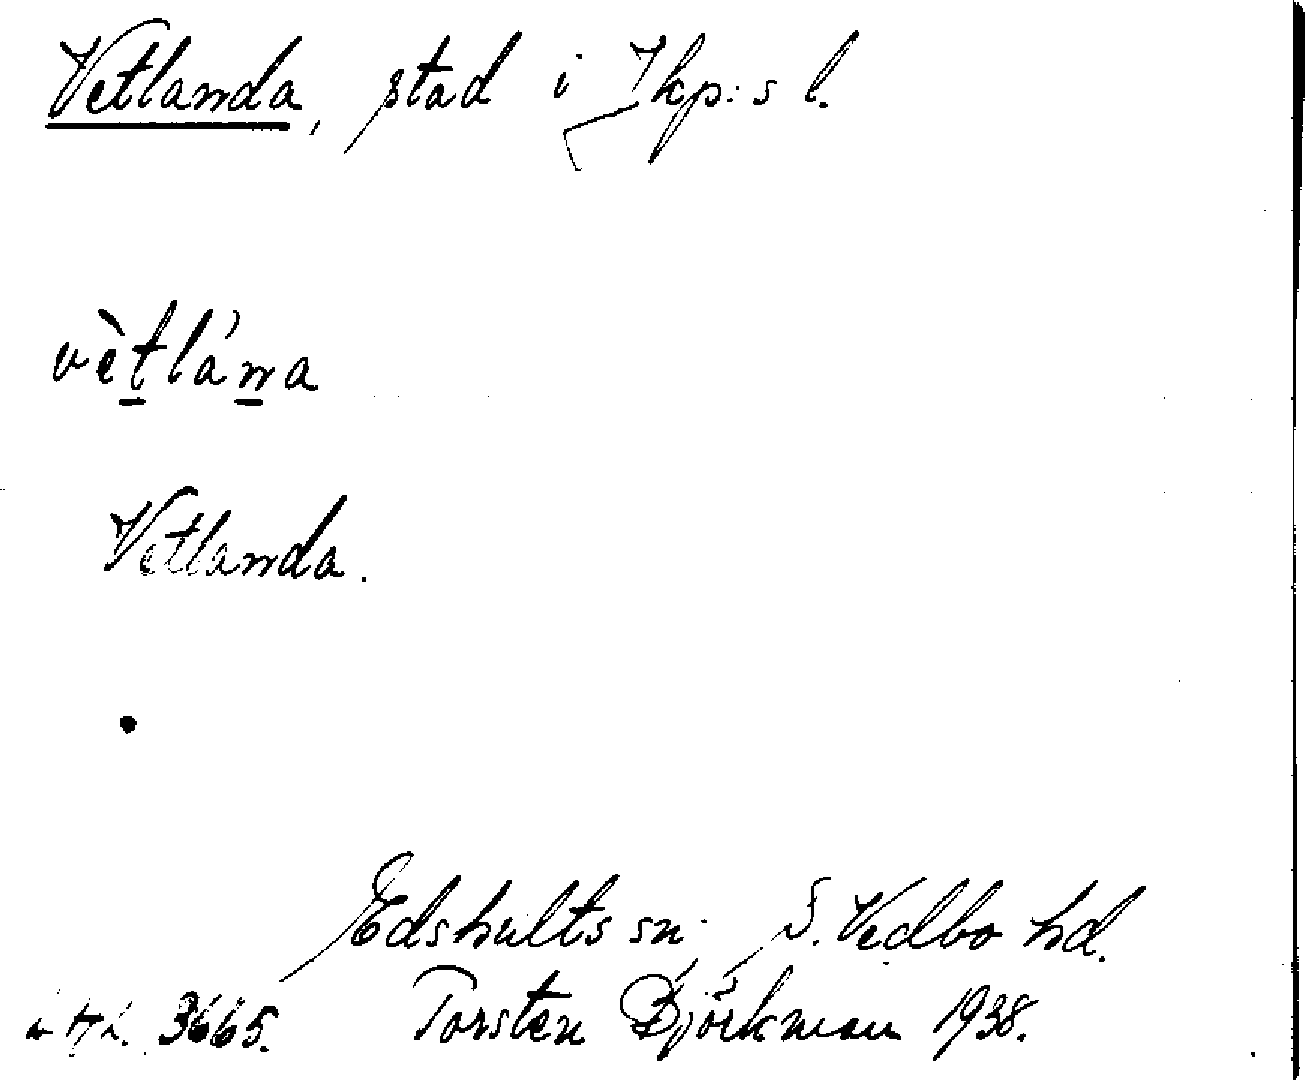 Vetlanda, stad i Jkp:s l.
vètlána
Vetlanda.
Edshults sn; S. Vedbo hd.
3665. Torsten Björkman 1938.